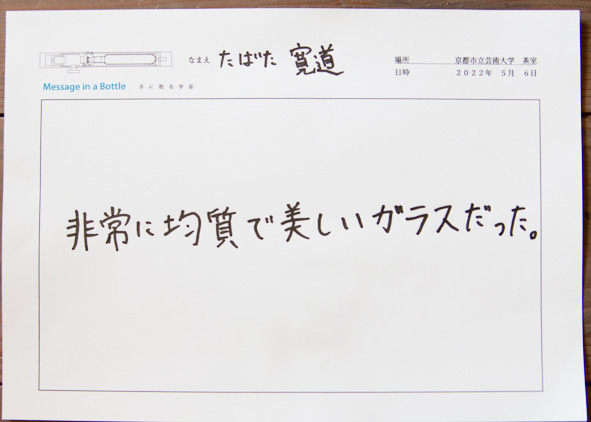 なまえ たばた 寛道
場所 京都市立芸術大学 茶室
日時 2022年 5月 6日
Message in a Bottle 手に取る宇宙
非常に均質で美しいガラスだった。